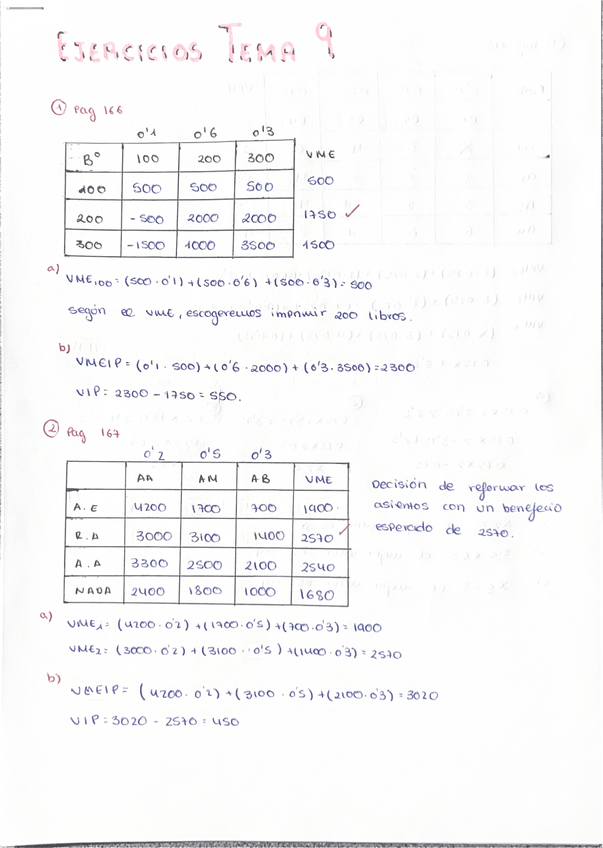 EJERCICIOS TEMA 9
① Pag 166
0'1 0'6 0'3
Bº 100 200 300 VME
100 500 500 500 500
200 -500 2000 2000 1750 ✓
300 -1500 1000 3500 1500
a) VME100 = (500 · 0'1) + (500 · 0'6) + (500 · 0'3) = 500
según el VME, escogeremos imprimir 200 libros.
b) VMEIP = (0'1 · 500) + (0'6 · 2000) + (0'3 · 3500) = 2300
VIP = 2300 - 1750 = 550.
② Pag 167
0'2 0'5 0'3
AA AM AB VME
A.E 4200 1700 700 1900
R.A 3000 3100 1400 2570 ✓
A.A 3300 2500 2100 2540
NADA 2400 1800 1000 1680
Decisión de reformar los
asientos con un benefecio
esperado de 2570.
a) VME1 = (4200 · 0'2) + (1700 · 0'5) + (700 · 0'3) = 1900
VME2 = (3000 · 0'2) + (3100 · 0'5) + (1400 · 0'3) = 2570
b) VMEIP = (4200 · 0'2) + (3100 · 0'5) + (2100 · 0'3) = 3020
VIP = 3020 - 2570 = 450